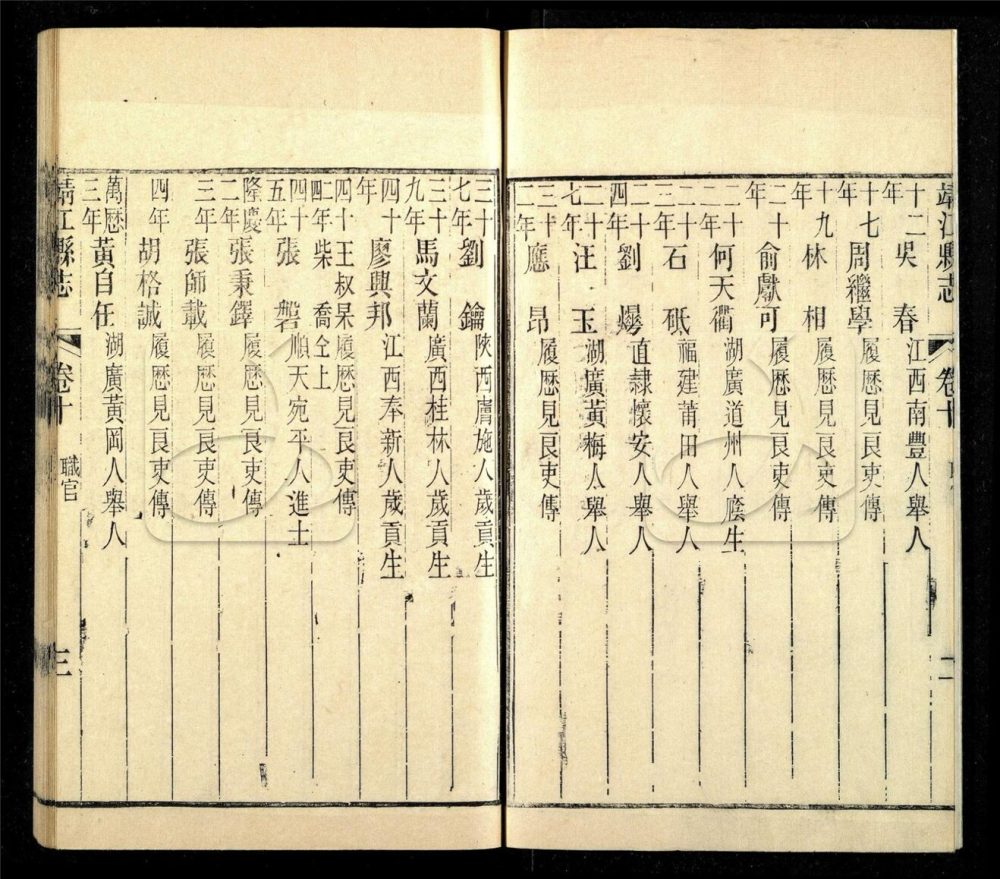 靖江縣志 卷十 二
十二年 吳春 江西南豐人舉人
十七年 周繼學 履歷見良吏傳
十九年 林相 履歷見良吏傳
二十年 俞猷可 履歷見良吏傳
二十二年 何天衢 湖廣道州人廕生
二十三年 石砥 福建莆田人舉人
二十四年 劉 直隸懷安人舉人
二十七年 汪玉 湖廣黃梅人舉人
三十二年 應昂 履歷見良吏傳
三十七年 劉鑰 陝西膚施人歲貢生
三十九年 馬文蘭 廣西桂林人歲貢生
四十年 廖興邦 江西奉新人歲貢生
四十二年 王叔杲 履歷見良吏傳
四 柴喬 仝上
四十五年 張磐 順天宛平人進士
隆慶二年 張秉鐸 履歷見良吏傳
三年 張師載 履歷見良吏傳
四年 胡格誠 履歷見良吏傳
萬歷三年 黃自任 湖廣黃岡人舉人
靖江縣志 卷十 職官 三